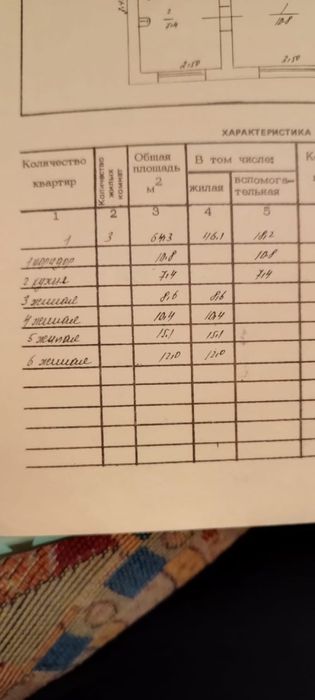 2
7,4
1
10.8
2.50
2.50
ХАРАКТЕРИСТИКА
Количество квартир
Количество жилых комнат
Общая площадь м2
В том числе:
жилая
вспомога-тельная
1 2 3 4 5
1 3 64.3 46.1 18,2
1 коридор 10.8 10.8
2 кухня 7,4 7,4
3 жилая 8,6 8,6
4 жилая 10,4 10,4
5 жилая 15,1 15,1
6 жилая 12,0 12,0